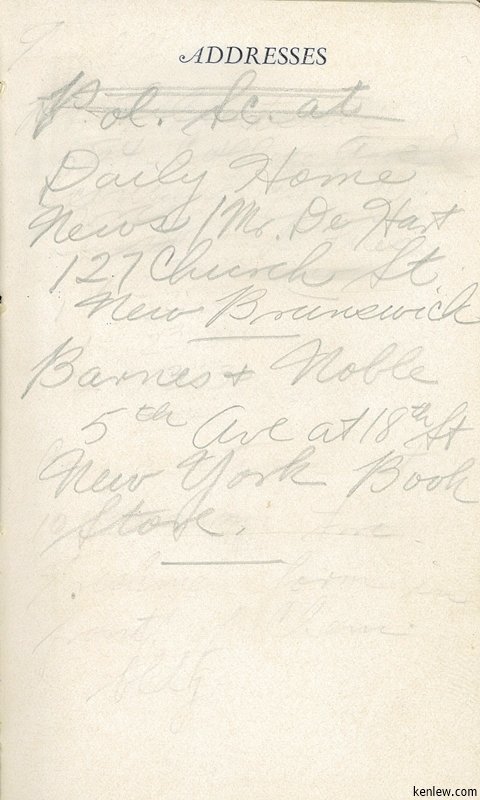 ADDRESSES
Pol. Sc. at
Daily Home
News / Mr. De Hart
127 Church St.
New Brunswick
Barnes & Noble
5th Ave at 18th St
New York Book
Store.
kenlew.com